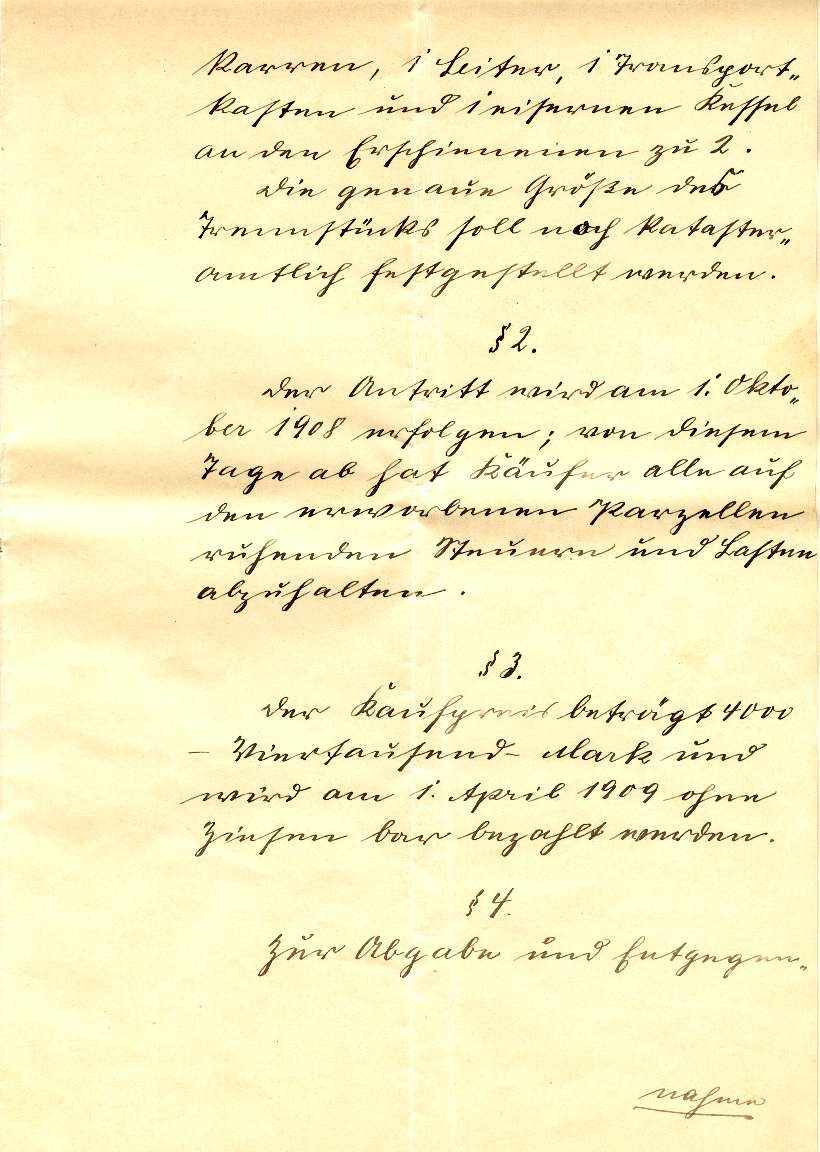 Karren, 1 Leiter, 1 Transport„
kasten und 1 eisernen Kessel
an den Erschienenen zu 2.
Die genaue Größe des
Trennstücks soll noch kataster„
amtlich festgestellt werden.
§ 2.
Der Antritt wird am 1. Okto„
ber 1908 erfolgen; von diesem
Tage ab hat Käufer alle auf
den erworbenen Parzellen
ruhenden Steuern und Lasten
abzuhalten.
§ 3.
Der Kaufpreis beträgt 4000
– Viertausend – Mark und
wird am 1. April 1909 ohne
Zinsen bar bezahlt werden.
§ 4.
Zur Abgabe und Entgegen„
nahme